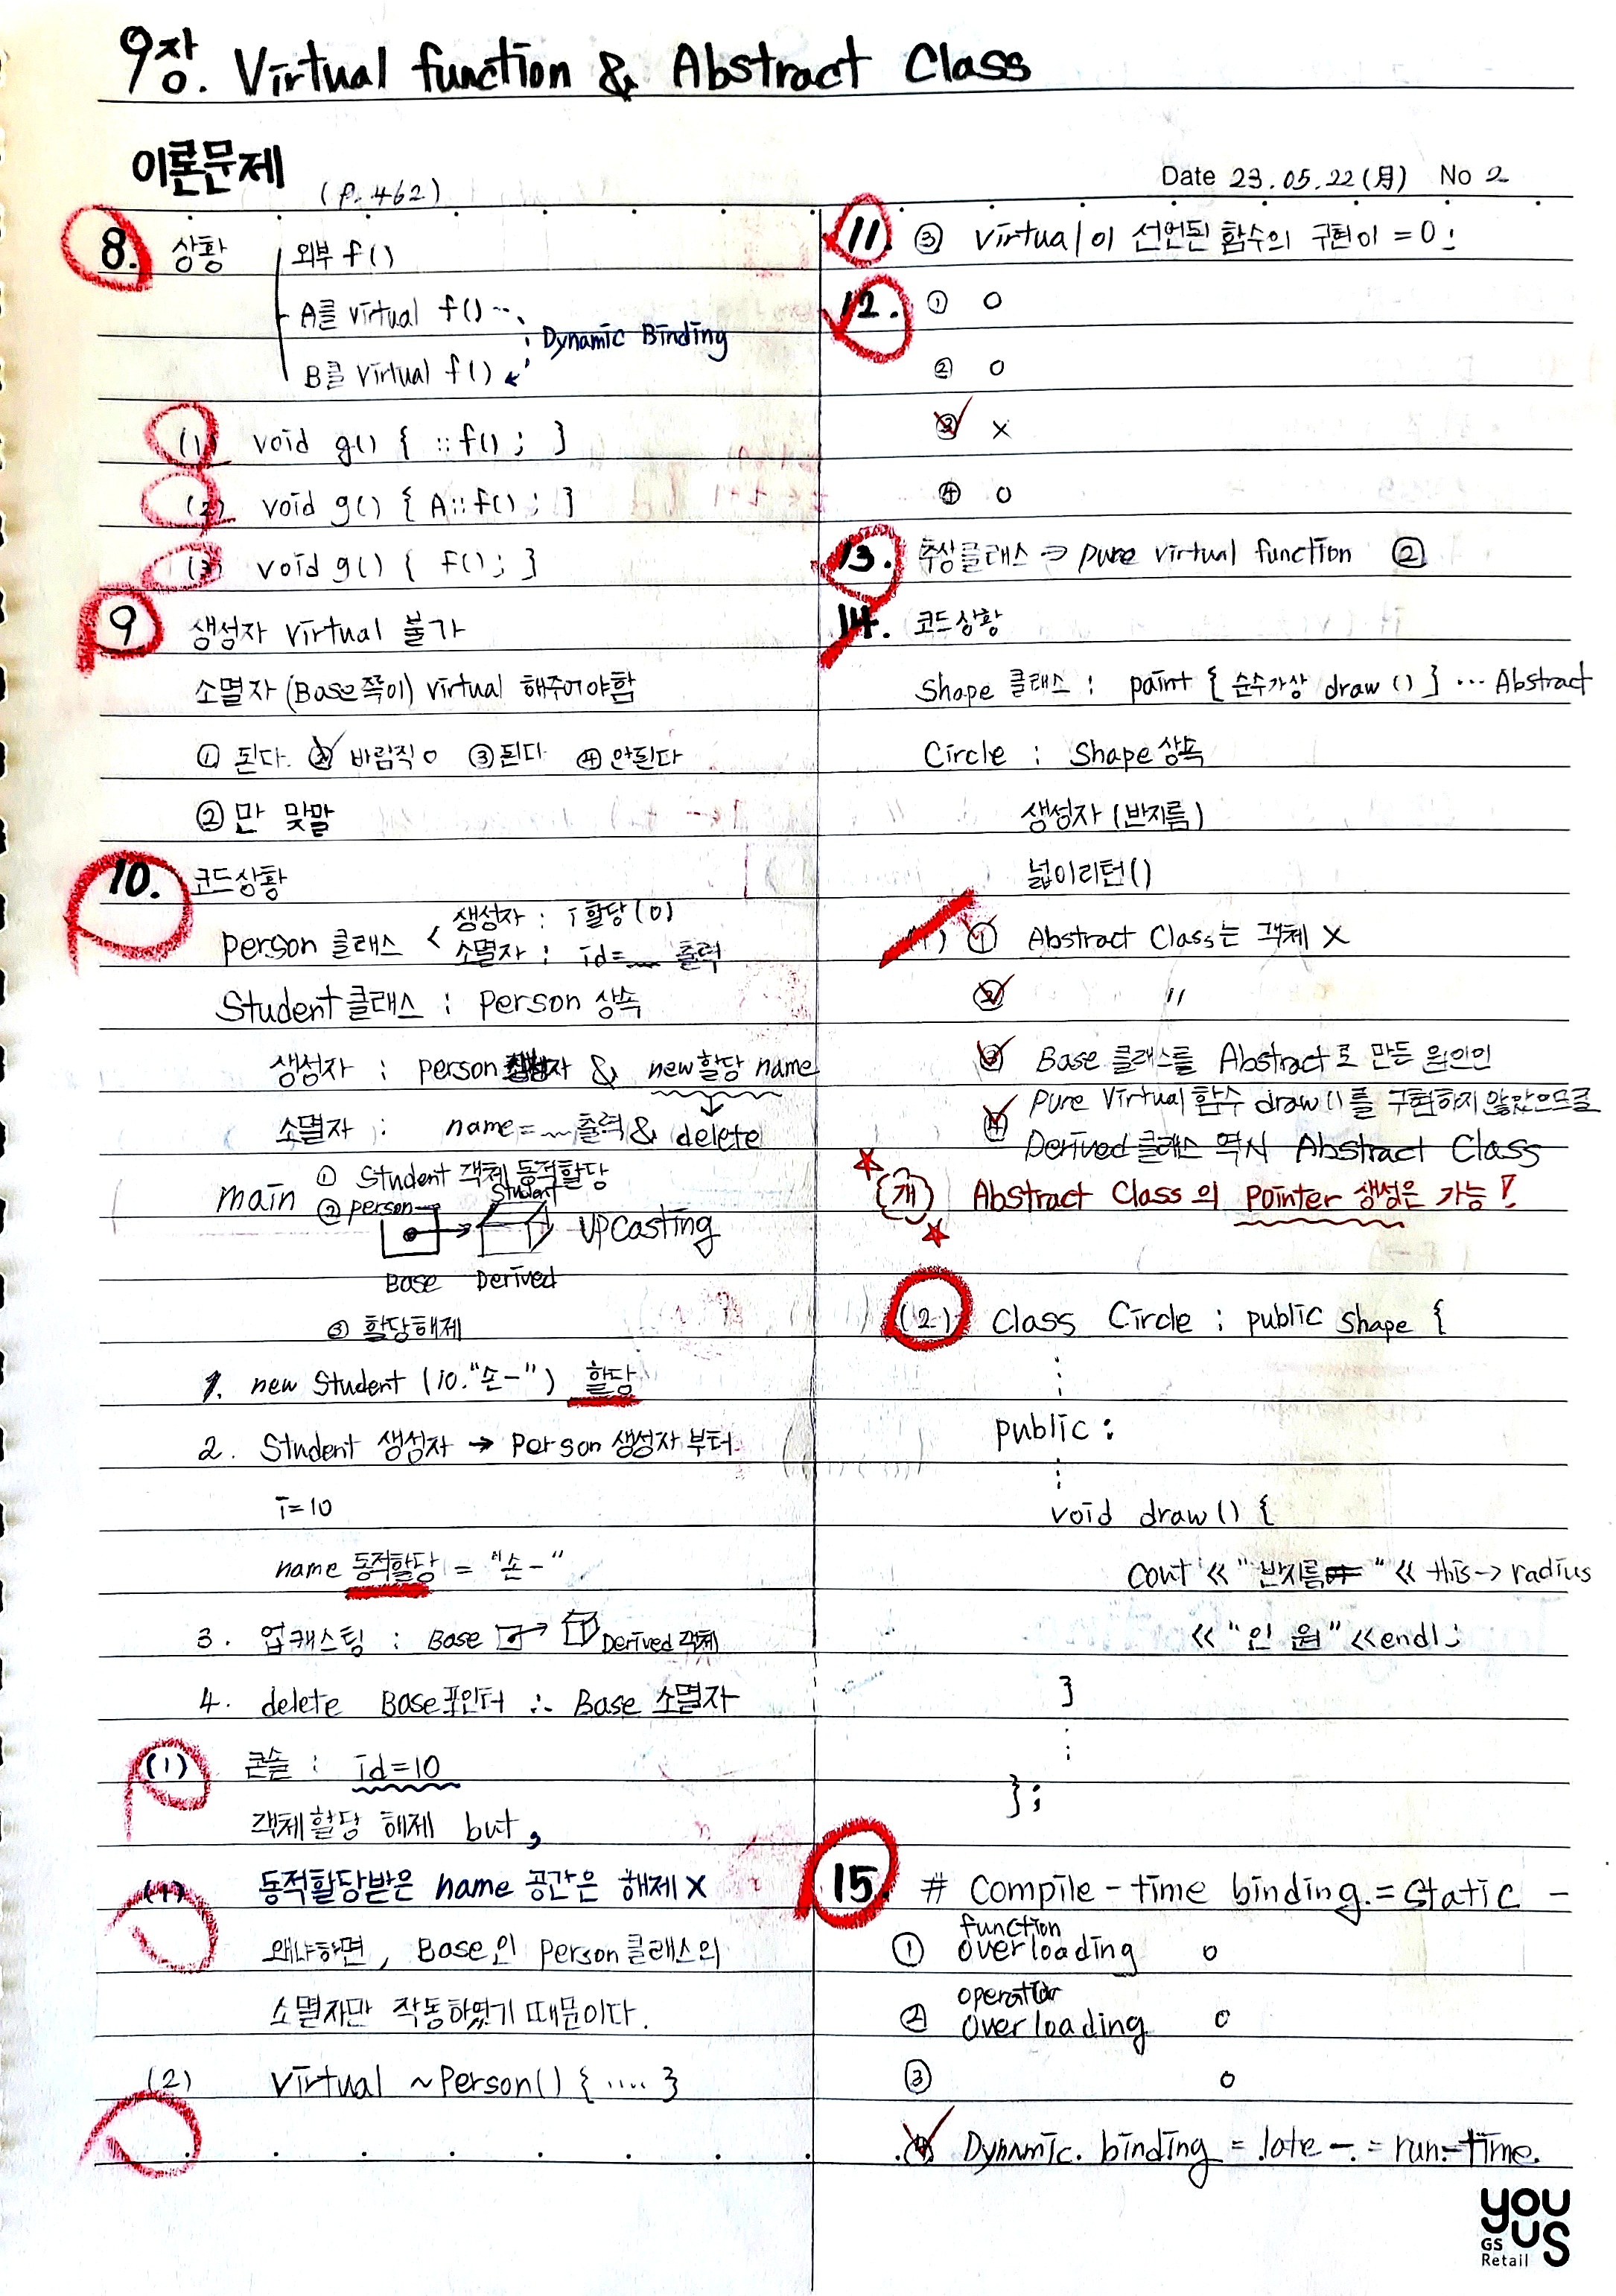 9장. Virtual function & Abstract Class
이론문제
(p.462)
Date 23.05.22(月) No 2
8. 상황
외부 f()
A클 virtual f()
B클 virtual f()
Dynamic Binding
(1) void g() { ::f() ; }
(2) void g() { A::f() ; }
(3) void g() { f() ; }
9 생성자 virtual 불가
소멸자 (Base쪽이) virtual 해주어야함
① 된다. ② 바람직 o ③ 된다 ④ 안된다
② 만 맞말
10. 코드상황
person 클래스 < 생성자 : i 할당(0)
소멸자 : id=﹏ 출력
Student 클래스 : person 상속
생성자 : person 생성자 & new할당 name
소멸자 : name=﹏출력 & delete
main ① Student 객체 동적할당
② person Student
UPCasting
Base Derived
③ 할당해제
1. new Student (10."손-") 할당
2. Student 생성자 → Person 생성자 부터
i=10
name 동적할당 = "손-"
3. 업캐스팅 : Base → Derived 객체
4. delete Base포인터 ∴ Base 소멸자
(1) 콘솔 : id=10
객체할당 해제 but,
(1) 동적할당받은 name 공간은 해제 X
왜냐하면, Base인 Person클래스의
소멸자만 작동하였기 때문이다.
(2) virtual ~Person() { ..... }
11. ③ virtual이 선언된 함수의 구현이 =0;
12. ① o
② o
③ x
④ o
13. 추상클래스 ⇒ pure virtual function ②
14. 코드상황
Shape 클래스 : paint { 순수가상 draw () } ... Abstract
Circle : Shape 상속
생성자 (반지름)
넓이리턴()
(1) ① Abstract Class는 객체 X
② "
③ Base 클래스를 Abstract로 만든 원인인
④ Pure Virtual 함수 draw()를 구현하지 않았으므로
Derived 클래스 역시 Abstract Class
Abstract Class의 Pointer 생성은 가능!
(2) Class Circle : public Shape {
⋮
public :
⋮
void draw () {
cout << "반지름 " << this->radius
<< "인 원" << endl;
}
⋮
};
15. # Compile-time binding.=Static -
① function overloading o
② operator overloading o
③ o
④ Dynamic. binding = late - = run-time.
you
us
GS
Retail